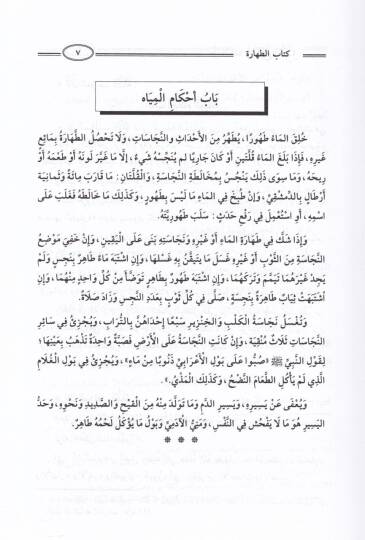 كتاب الطهارة
٧
بَابُ أَحْكَامِ الْمِيَاه
خُلِقَ المَاءُ طَهُورًا، يُطَهِّرُ مِنَ الأَحْدَاثِ والنَّجَاسَاتِ، وَلَا تَحْصُلُ الطَّهَارَةُ بِمَائِعٍ
غَيرِهِ، فَإِذَا بَلَغَ المَاءُ قُلَّتَينِ أَوْ كَانَ جَارِيًا لم يُنَجِّسْهُ شَيءٌ، إِلَّا مَا غَيَّرَ لَونَهُ أَوْ طَعْمَهُ أَوْ
رِيحَهُ، وَمَا سِوَى ذَلِكَ يَنْجُسُ بِمُخَالَطَةِ النَّجَاسَةِ، وَالْقُلَّتَانِ: مَا قَارَبَ مِائَةً وَثَمَانِيَةَ
أَرْطَالٍ بِالدِّمَشْقِيِّ، وَإِنْ طُبِخَ فِي المَاءِ مَا لَيْسَ بِطَهُورٍ، وَكَذَلِكَ مَا خَالَطَهُ فَغَلَبَ عَلَى
اسْمِهِ، أَوِ اسْتُعْمِلَ فِي رَفْعِ حَدَثٍ: سَلَبَ طَهُورِيَّتَهُ.
وَإِذَا شَكَّ فِي طَهَارَةِ المَاءِ أَوْ غَيْرِهِ وَنَجَاسَتِهِ بَنَى عَلَى الْيَقِينِ، وَإِنْ خَفِيَ مَوْضِعُ
النَّجَاسَةِ مِنَ الثَّوْبِ أَوْ غَيْرِهِ غَسَلَ مَا يَتَيَقَّنُ بِهِ غَسْلَهَا، وَإِنِ اشْتَبَهَ مَاءٌ طَاهِرٌ بِنَجِسٍ وَلَمْ
يَجِدْ غَيْرَهُمَا تَيَمَّمَ وَتَرَكَهُمَا، وَإِنِ اشْتَبَهَ طَهُورٌ بِطَاهِرٍ تَوَضَّأَ مِنْ كُلِّ وَاحِدٍ مِنْهُمَا، وَإِنِ
اشْتَبَهَتْ ثِيَابٌ طَاهِرَةٌ بِنَجِسَةٍ، صَلَّى فِي كُلِّ ثَوْبٍ بِعَدَدِ النَّجِسِ وَزَادَ صَلَاةً.
وَتُغْسَلُ نَجَاسَةُ الْكَلْبِ وَالخِنْزِيرِ سَبْعًا إِحْدَاهُنَّ بِالتُّرَابِ، وَيُجْزِئُ فِي سَائِرِ
النَّجَاسَاتِ ثَلَاثٌ مُنْقِيَةٌ، وَإِنْ كَانَتِ النَّجَاسَةُ عَلَى الْأَرْضِ فَصَبَّةٌ وَاحِدَةٌ تَذْهَبُ بِعَيْنِهَا؛
لِقَوْلِ النَّبِيِّ ﷺ «صُبُّوا عَلَى بَوْلِ الْأَعْرَابِيِّ ذَنُوبًا مِنْ مَاءٍ»، وَيُجْزِئُ فِي بَوْلِ الْغُلَامِ
الَّذِي لَمْ يَأْكُلِ الطَّعَامَ النَّضْحُ، وَكَذَلِكَ الْمَذْيُ.
وَيُعْفَى عَنْ يَسِيرِهِ، وَيَسِيرِ الدَّمِ وَمَا تَوَلَّدَ مِنْهُ مِنَ الْقَيْحِ وَالصَّدِيدِ وَنَحْوِهِ، وَحَدُّ
الْيَسِيرِ هُوَ مَا لَا يَفْحُشُ فِي النَّفْسِ، وَمَنِيُّ الْآدَمِيِّ وَبَوْلُ مَا يُؤْكَلُ لَحْمُهُ طَاهِرٌ.
* * *